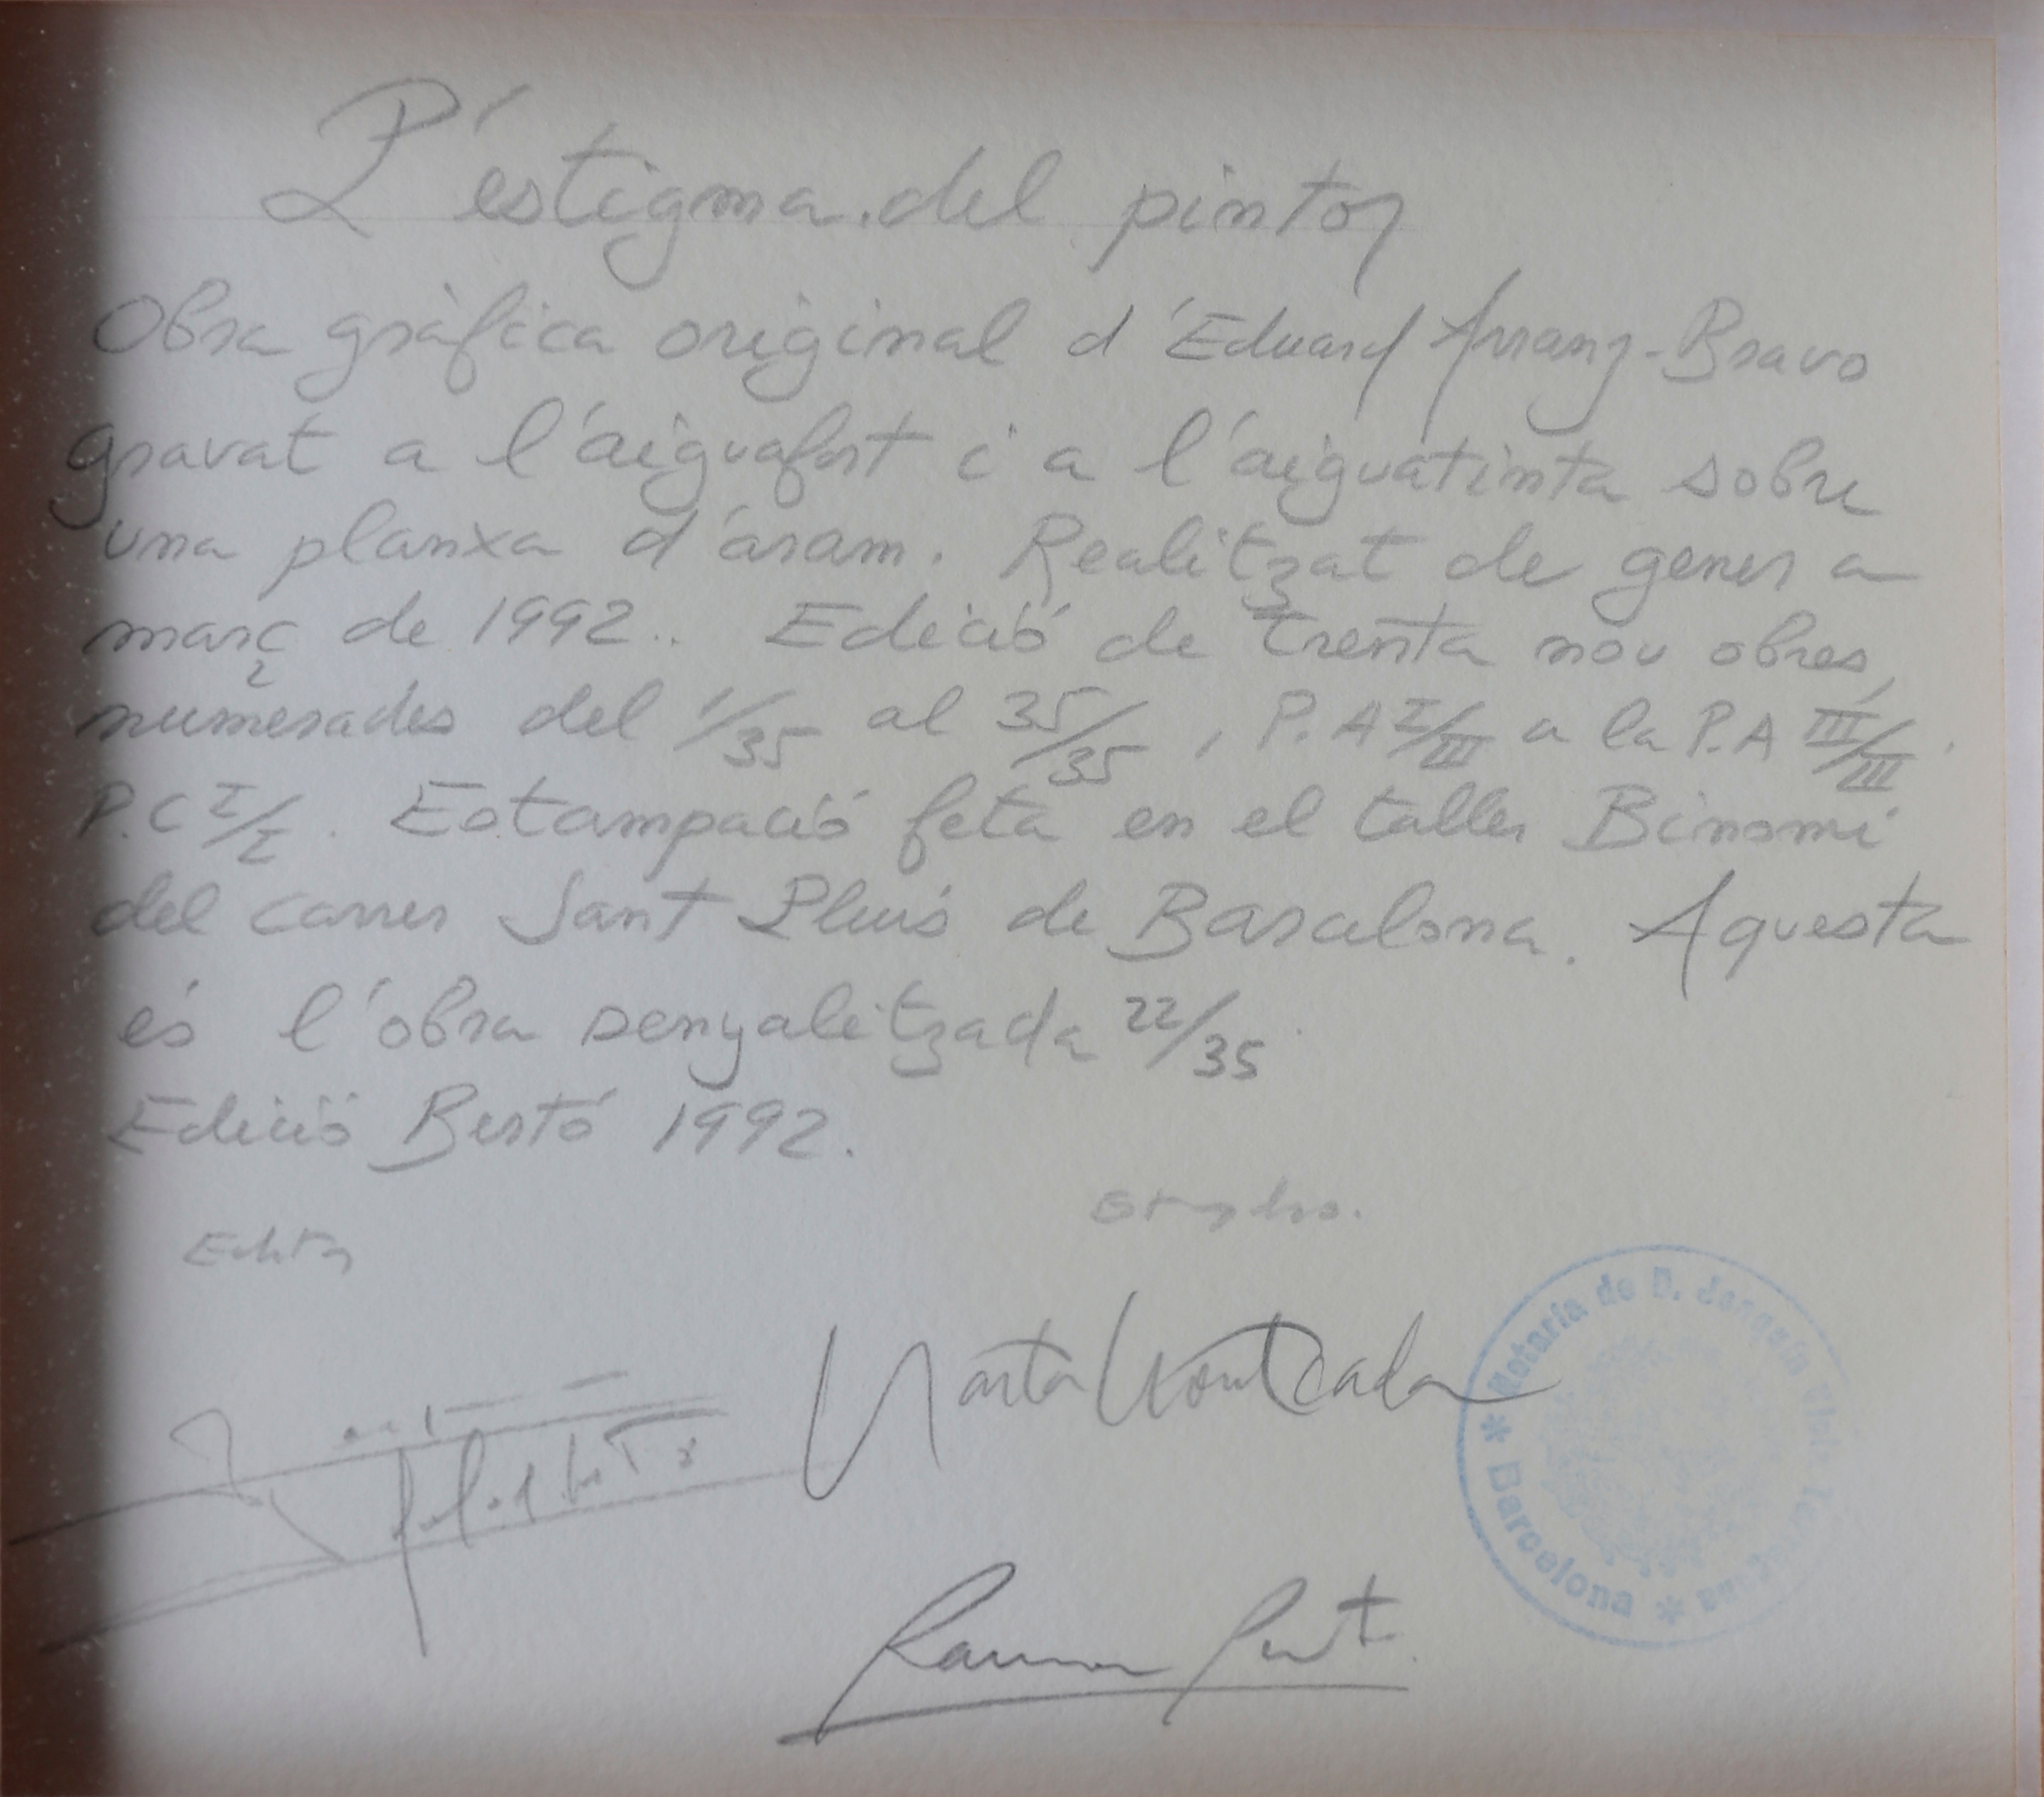 L'estigma del pintor
Obra gràfica original d'Eduard Arranz-Bravo
gravat a l'aiguafort i a l'aiguatinta sobre
una planxa d'aram. Realitzat de gener a
març de 1992.. Edició de trenta nou obres,
numerades del 1/35 al 35/35, P.A I/III a la P.A III/III.
P.C I/I. Estampació feta en el taller Binomi
del carrer Sant Lluís de Barcelona. Aquesta
és l'obra senyalitzada 22/35
Edició Bestó 1992.
Editor
Marta Montcada
Ramon
Notaría de D. Joaquín
* Barcelona *